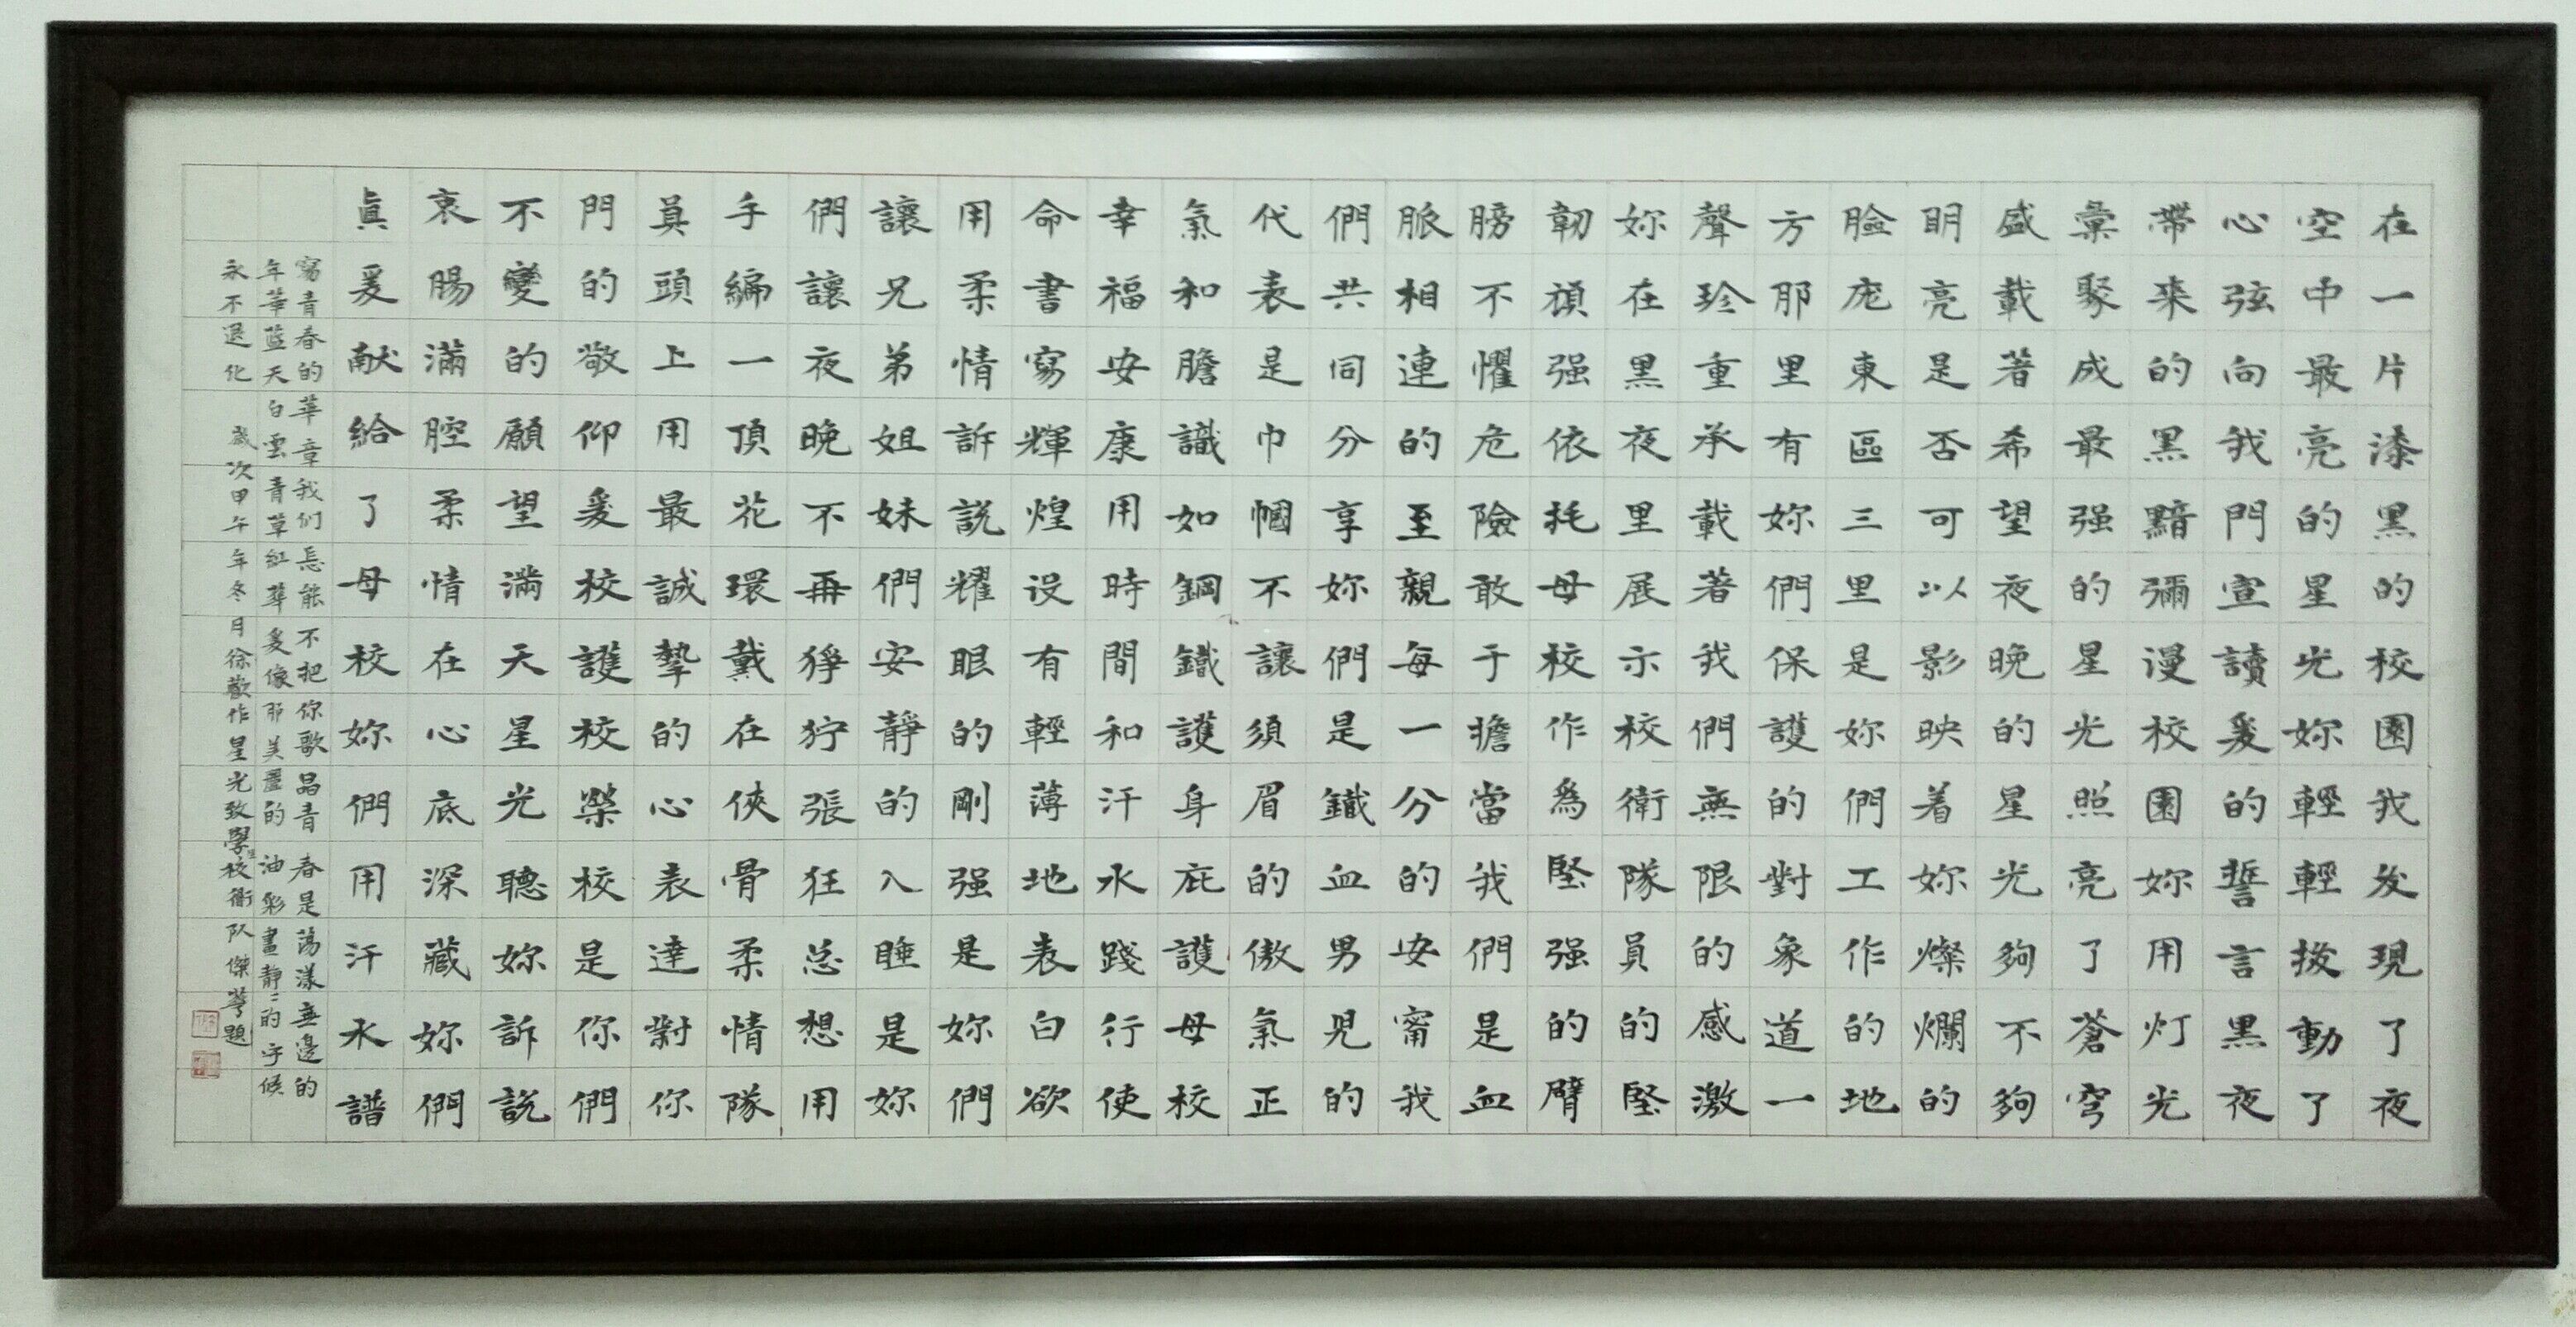 在一片漆黑的校園我发現了夜
空中最亮的星光妳輕輕拨動了
心弦向我門宣讀爰的誓言黑夜
帶来的黑黯彌漫校園妳用灯光
彙聚成最强的星光照亮了蒼穹
盛載著希望夜晚的星光夠不夠
明亮是否可以影映着妳燦爛的
臉庞東區三里是妳們工作的地
方那里有妳們保護的對象道一
聲珍重承載著我們無限的感激
妳在黑夜里展示校衛隊員的堅
韌頑强依托母校作為堅强的臂
膀不懼危險敢于擔當我們是血
脈相連的至親每一分的安甯我
們共同分享妳們是鐵血男児的
代表是巾幗不讓須眉的傲氣正
氣和膽識如鋼鐵護身庇護母校
幸福安康用時間和汗水踐行使
命書寫輝煌没有輕薄地表白欲
用柔情訴説耀眼的剛强是妳們
讓兄弟姐妹們安靜的入睡是妳
們讓夜晚不再猙狞張狂总想用
手編一頂花環戴在俠骨柔情隊
員頭上用最誠摯的心表達對你
門的敬仰爰校護校榮校是你們
不變的願望滿天星光聽妳訴説
衷腸滿腔柔情在心底深藏妳們
眞爰献給了母校妳們用汗水譜
寫青春的華章我们怎能不把你歌唱青春是蕩漾無邊的
年華藍天白雲青草紅華爰像那美麗的油彩畫靜二的守候
永不退化 歲次甲午年冬月徐歡作星光致學生校衛队傑題